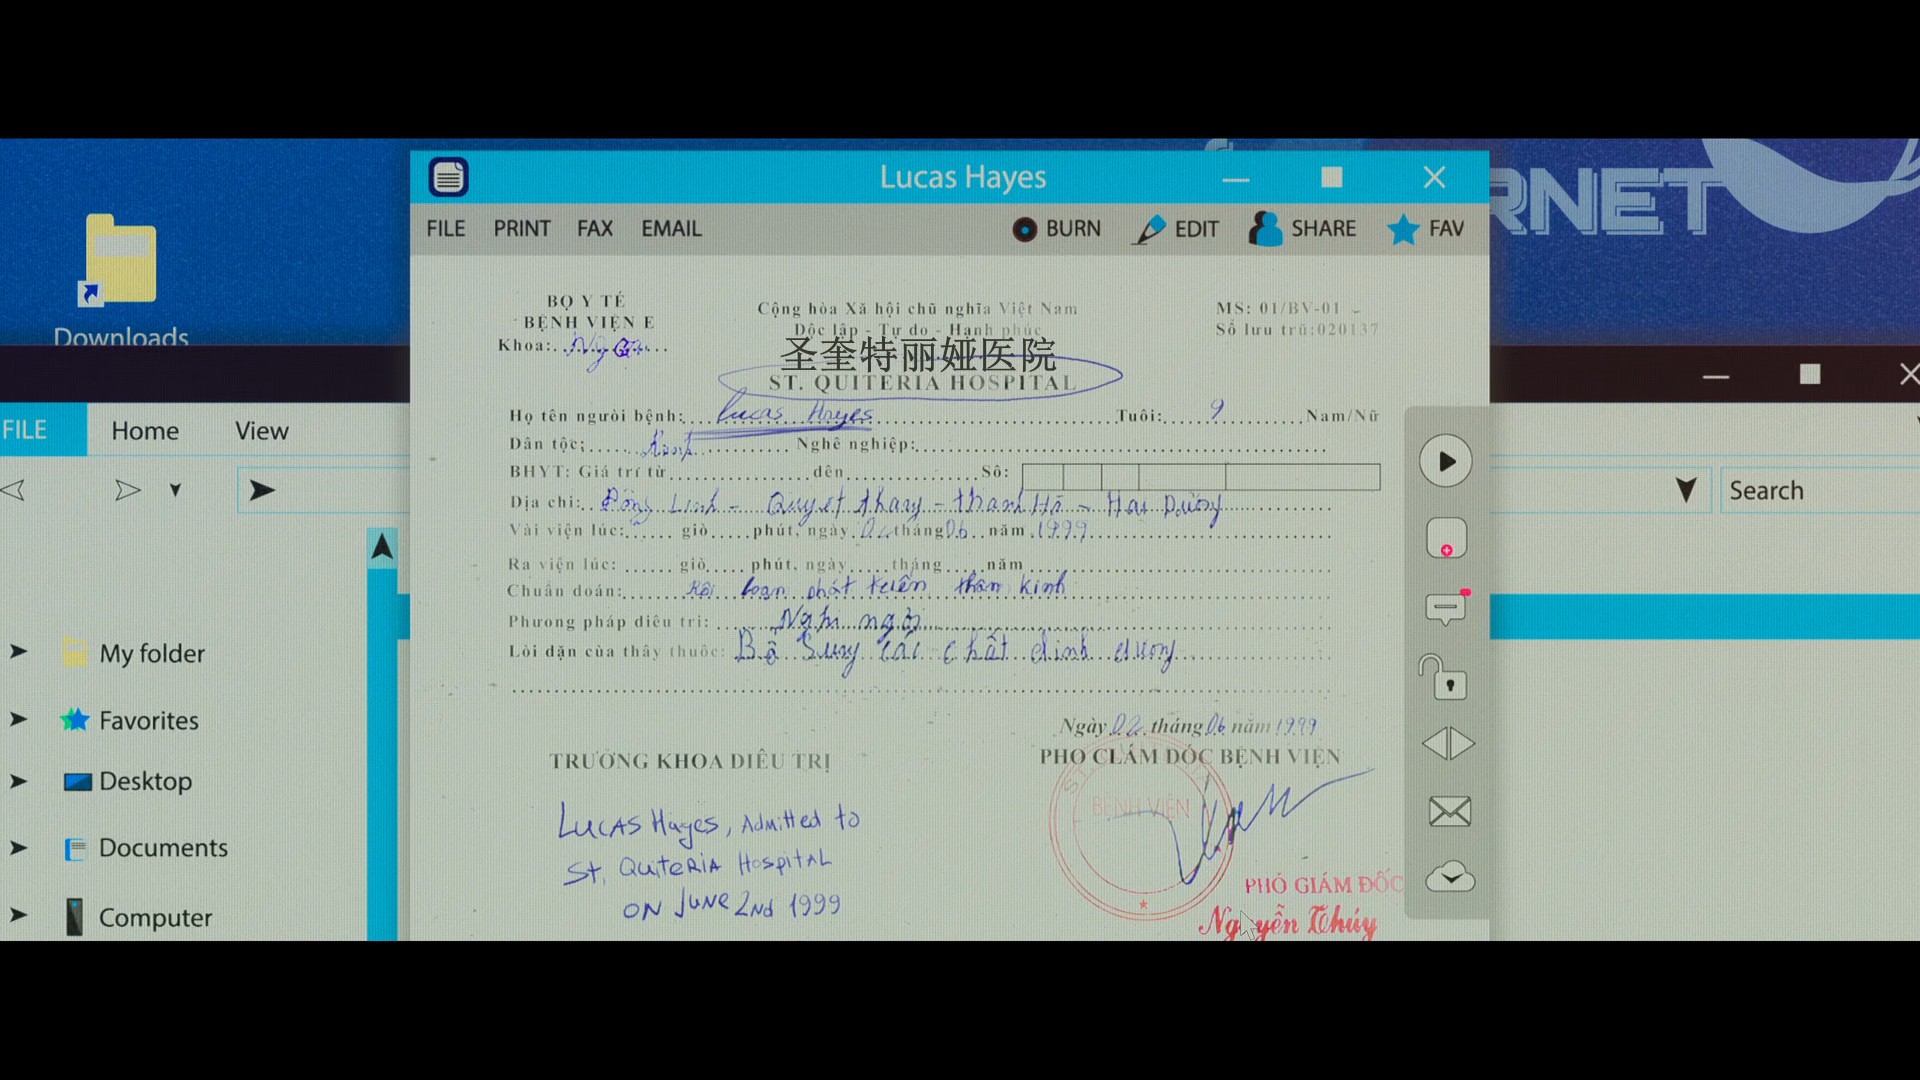 Lucas Hayes
FILE PRINT FAX EMAIL BURN EDIT SHARE FAV
RNET
Downloads
BỌ Y TÉ
BỆNH VIỆN E
Khoa:
Cộng hòa Xã hội chũ nghĩa Việt Nam
Dộc lập - Tự do - Hạnh phúc
MS: 01/BV-01
Số lưu trũ:020137
圣奎特丽娅医院
ST. QUITERIA HOSPITAL
Họ tên nguòi bệnh: Lucas Hayes Tuôi: 9 Nam/Nũ
Dân tộc: Kinh Nghê nghiệp:
BHYT: Giá trí từ dên Sô:
Dịa chi: Đông Linh - Quyet thang - thanh Hà - Hai Dương
Vài viện lúc: giò phút, ngày 02 tháng 06 năm 1999
Ra viện lúc: giò phút, ngày tháng năm
Chuân doán: Rối loạn phát triên thân kinh
Phuong pháp diêu tri: Nghi ngơi
Lòi dặn cùa thây thuôc: Bổ Sung các chất dinh dương
Ngày 02 tháng 06 năm 1999
TRƯỞNG KHOA DIÊU TRỊ
PHO CLÁM DÓC BỆNH VIỆN
BỆNH VIỆN
Lucas Hayes, Admitted to
St. Quiteria Hospital
ON June 2nd 1999
PHÓ GIÁM ĐỐC
Nguyễn Thúy
FILE Home View
Search
My folder
Favorites
Desktop
Documents
Computer